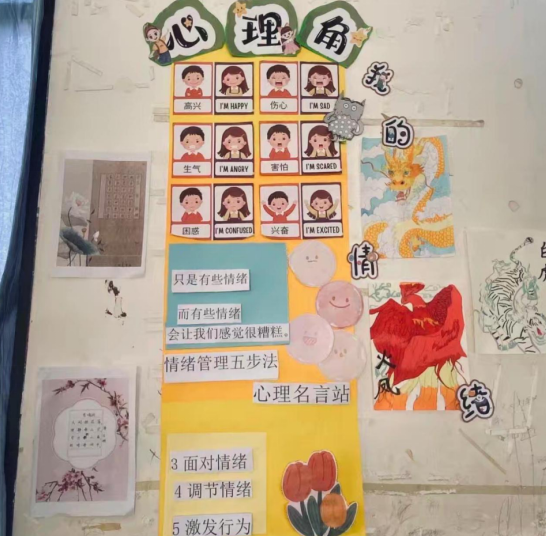 心理角
高兴
I'M HAPPY
伤心
I'M SAD
生气
I'M ANGRY
害怕
I'M SCARED
困惑
I'M CONFUSED
兴奋
I'M EXCITED
我的情绪
只是有些情绪
而有些情绪
会让我们感觉很糟糕。
情绪管理五步法
心理名言站
3 面对情绪
4 调节情绪
5 激发行为
火凤
白虎